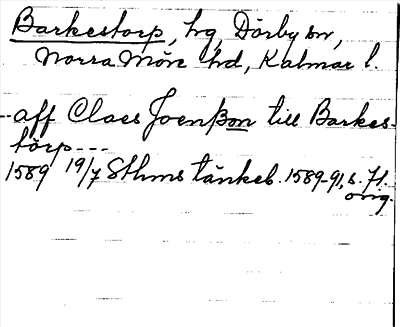 Barkestorp, hg, Dörby sn,
Norra Möre hd, Kalmar l.
--aff Claes Joenßon till Barkes-
törp---
1589 19/7 Sthms tänkeb. 1589-91, s. 71.
orig.